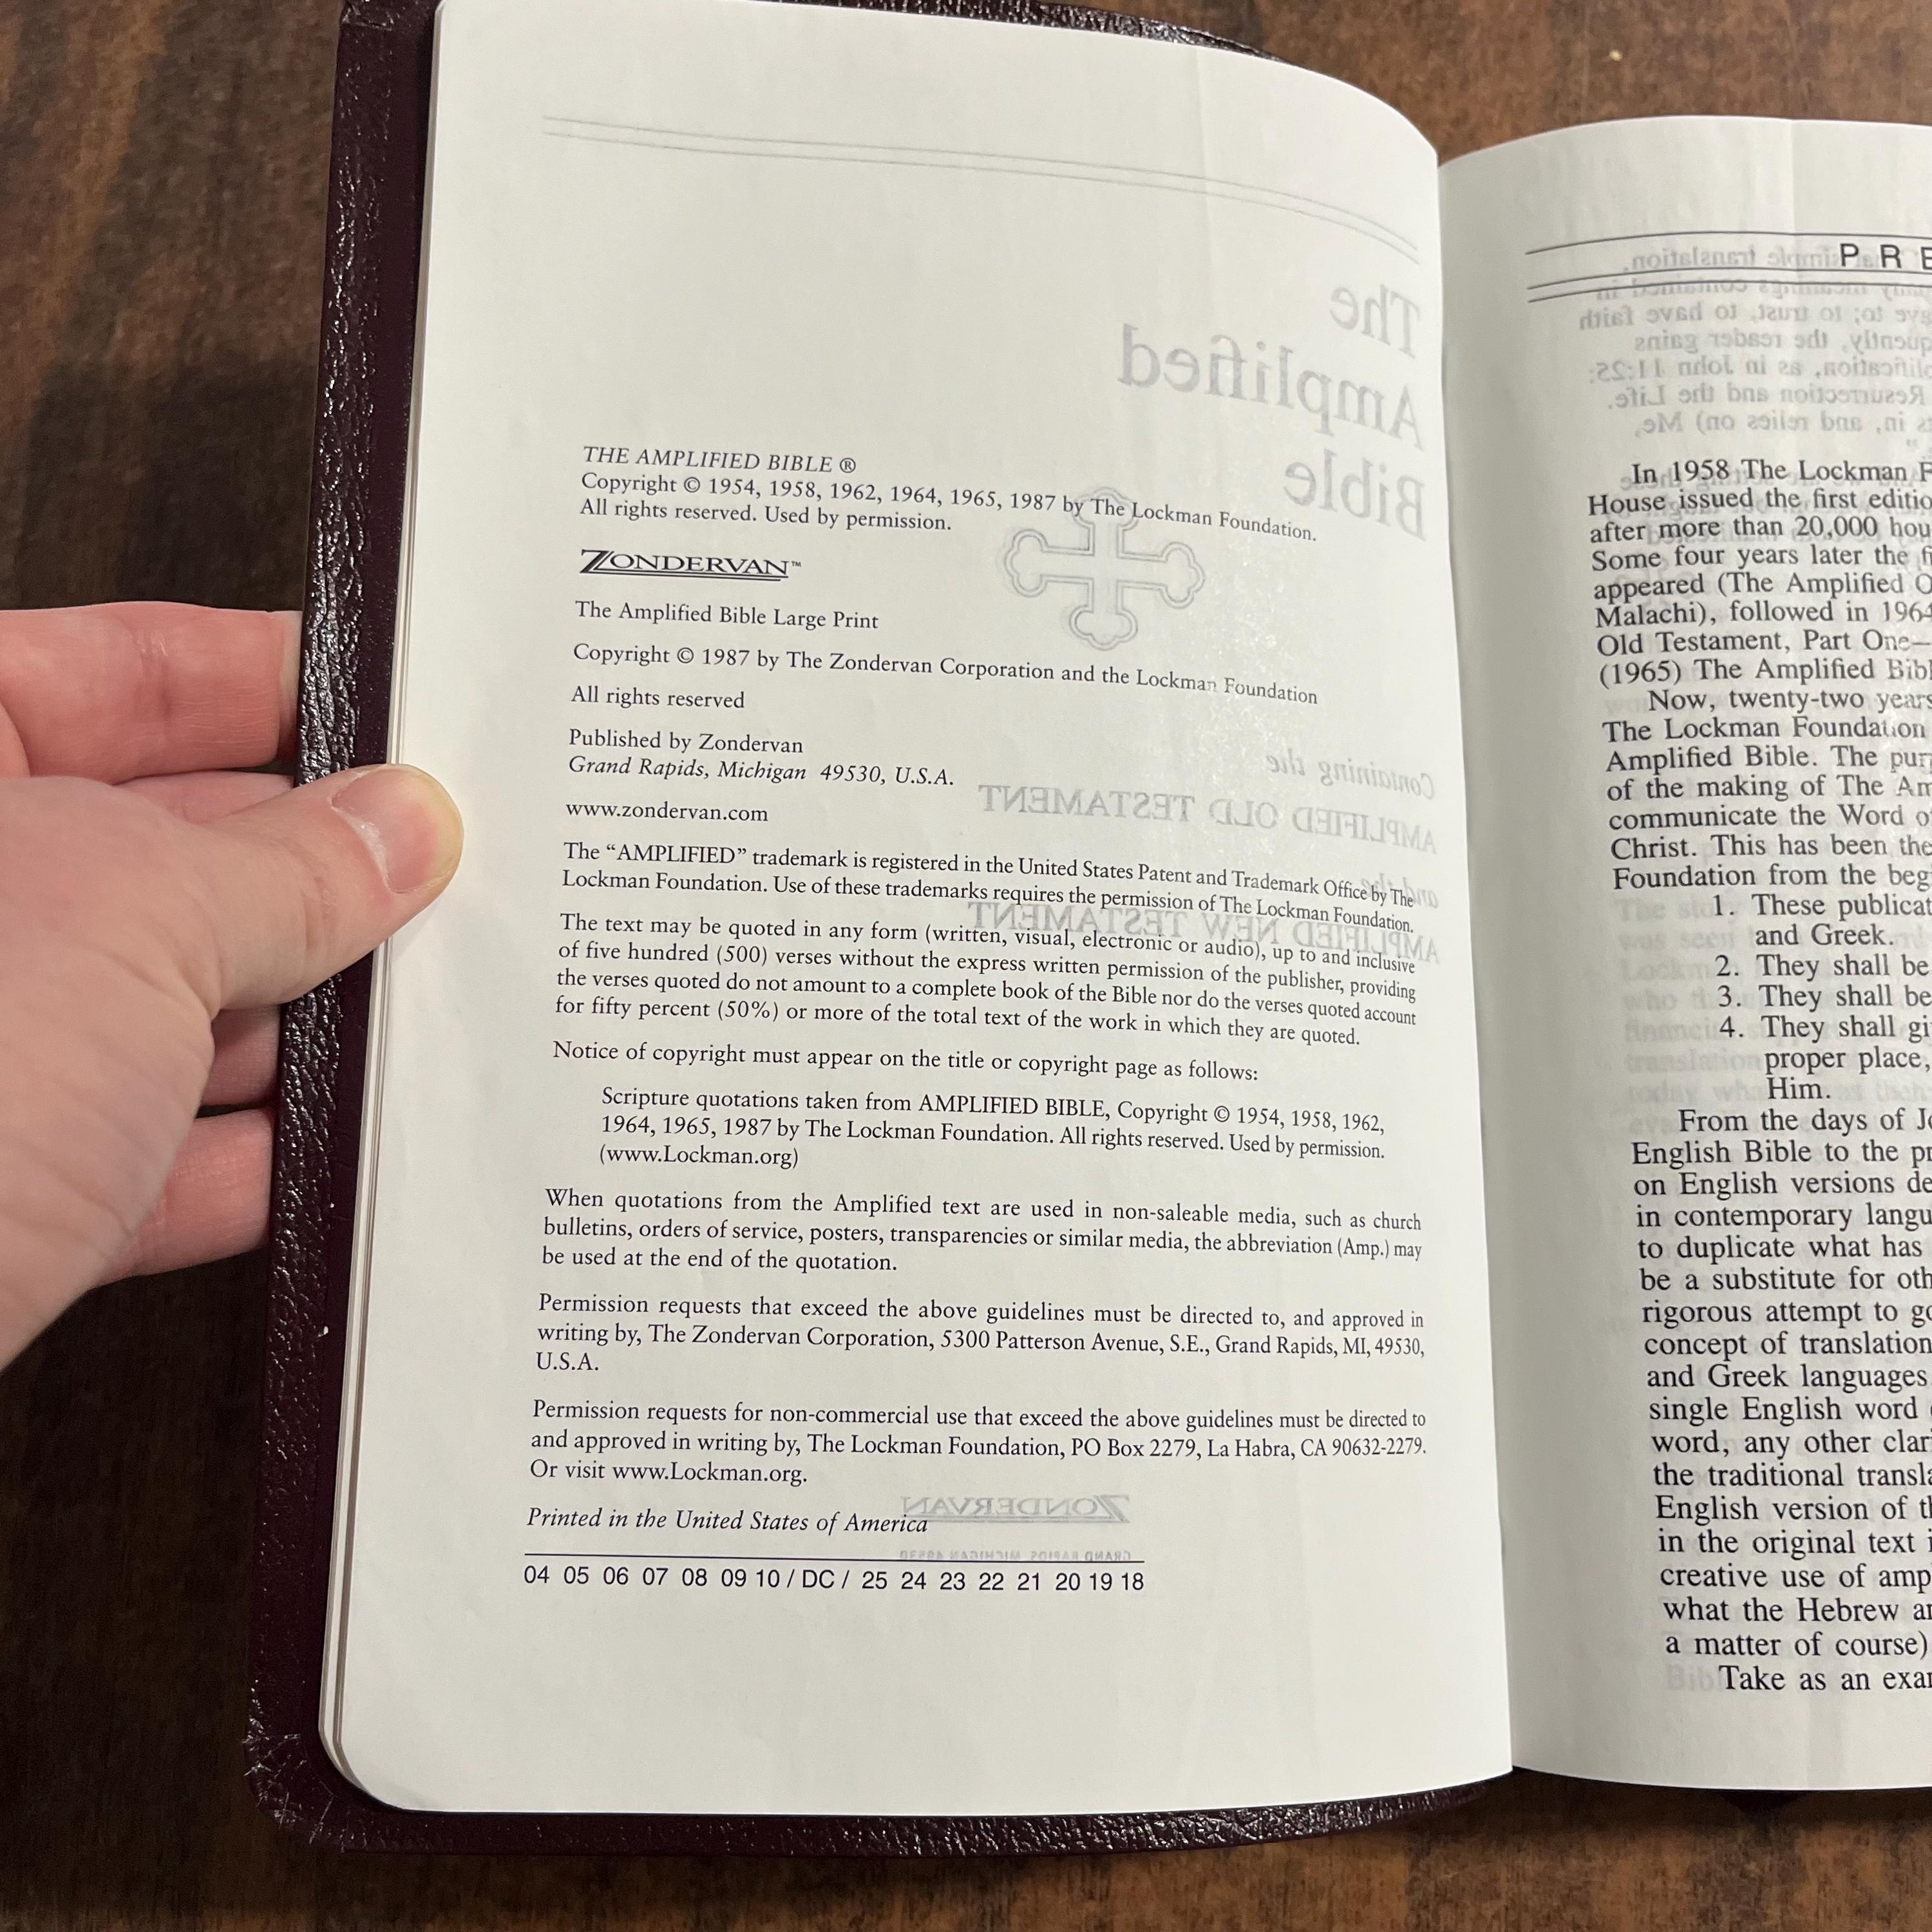 THE AMPLIFIED BIBLE ®
Copyright © 1954, 1958, 1962, 1964, 1965, 1987 by The Lockman Foundation.
All rights reserved. Used by permission.
ZONDERVAN™
The Amplified Bible Large Print
Copyright © 1987 by The Zondervan Corporation and the Lockman Foundation
All rights reserved
Published by Zondervan
Grand Rapids, Michigan 49530, U.S.A.
www.zondervan.com
The “AMPLIFIED” trademark is registered in the United States Patent and Trademark Office by The
Lockman Foundation. Use of these trademarks requires the permission of The Lockman Foundation.
The text may be quoted in any form (written, visual, electronic or audio), up to and inclusive
of five hundred (500) verses without the express written permission of the publisher, providing
the verses quoted do not amount to a complete book of the Bible nor do the verses quoted account
for fifty percent (50%) or more of the total text of the work in which they are quoted.
Notice of copyright must appear on the title or copyright page as follows:
Scripture quotations taken from AMPLIFIED BIBLE, Copyright © 1954, 1958, 1962,
1964, 1965, 1987 by The Lockman Foundation. All rights reserved. Used by permission.
(www.Lockman.org)
When quotations from the Amplified text are used in non-saleable media, such as church
bulletins, orders of service, posters, transparencies or similar media, the abbreviation (Amp.) may
be used at the end of the quotation.
Permission requests that exceed the above guidelines must be directed to, and approved in
writing by, The Zondervan Corporation, 5300 Patterson Avenue, S.E., Grand Rapids, MI, 49530,
U.S.A.
Permission requests for non-commercial use that exceed the above guidelines must be directed to
and approved in writing by, The Lockman Foundation, PO Box 2279, La Habra, CA 90632-2279.
Or visit www.Lockman.org.
Printed in the United States of America
04 05 06 07 08 09 10 / DC / 25 24 23 22 21 20 19 18
In 1958 The Lockman
House issued the first
after more than 20,000
Some four years later the
appeared (The Amplified
Malachi), followed in
Old Testament, Part One—
(1965) The Amplified
Now, twenty-two years
The Lockman Foundation
Amplified Bible. The
of the making of The
communicate the Word
Christ. This has been the
Foundation from the
1. These
and Greek.
2. They shall be
3. They shall be
4. They shall
proper place,
Him.
From the days of
English Bible to the
on English versions
in contemporary
to duplicate what has
be a substitute for
rigorous attempt to
concept of translation
and Greek languages
single English word
word, any other
the traditional
English version of
in the original text
creative use of
what the Hebrew
a matter of course)
Take as an